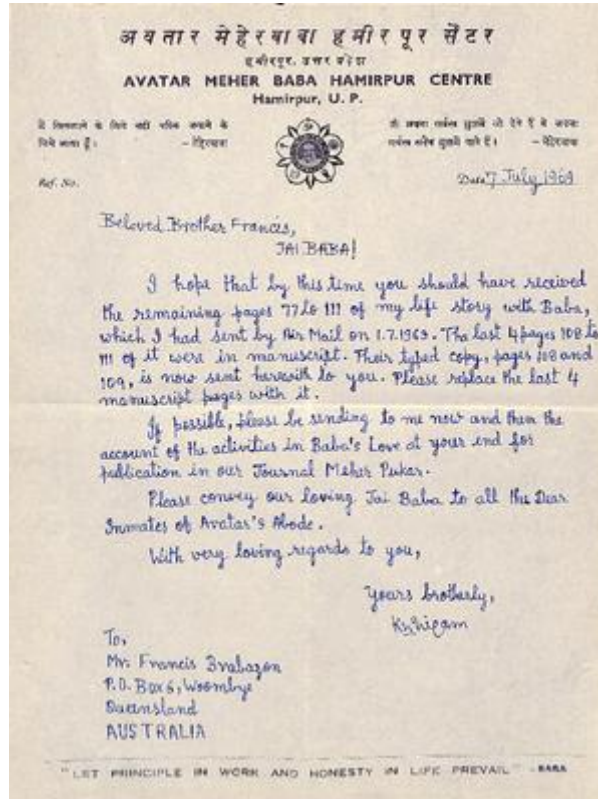 अवतार मेहेरबाबा हमीरपूर सेंटर
हमीरपुर, उत्तर प्रदेश
AVATAR MEHER BABA HAMIRPUR CENTRE
Hamirpur, U. P.
मैं सिखलाने के लिये नहीं वरिक जगाने के
लिये आया हूँ। - मेहेरबाबा
जो अपना सर्वस्व मुझको दे देते हैं वे अपना
सर्वस्व मुझको पाते हैं। - मेहेरबाबा
Ref. No.
Date 7 July 1969
Beloved Brother Francis,
JAI BABA!
I hope that by this time you should have received
the remaining pages 77 to 111 of my life story with Baba,
which I had sent by Air Mail on 1.7.1969. The last 4 pages 108 to
111 of it were in manuscript. Their typed copy, pages 108 and
109, is now sent herewith to you. Please replace the last 4
manuscript pages with it.
If possible, please be sending to me now and then the
account of the activities in Baba's Love at your end for
publication in our Journal Meher Pukar.
Please convey our loving Jai Baba to all the Dear
Inmates of Avatar's Abode.
With very loving regards to you,
Yours brotherly,
KNNigam
To,
Mr. Francis Brabazon
P.O. Box 6, Woombye
Queensland
AUSTRALIA
"LET PRINCIPLE IN WORK AND HONESTY IN LIFE PREVAIL" -BABA